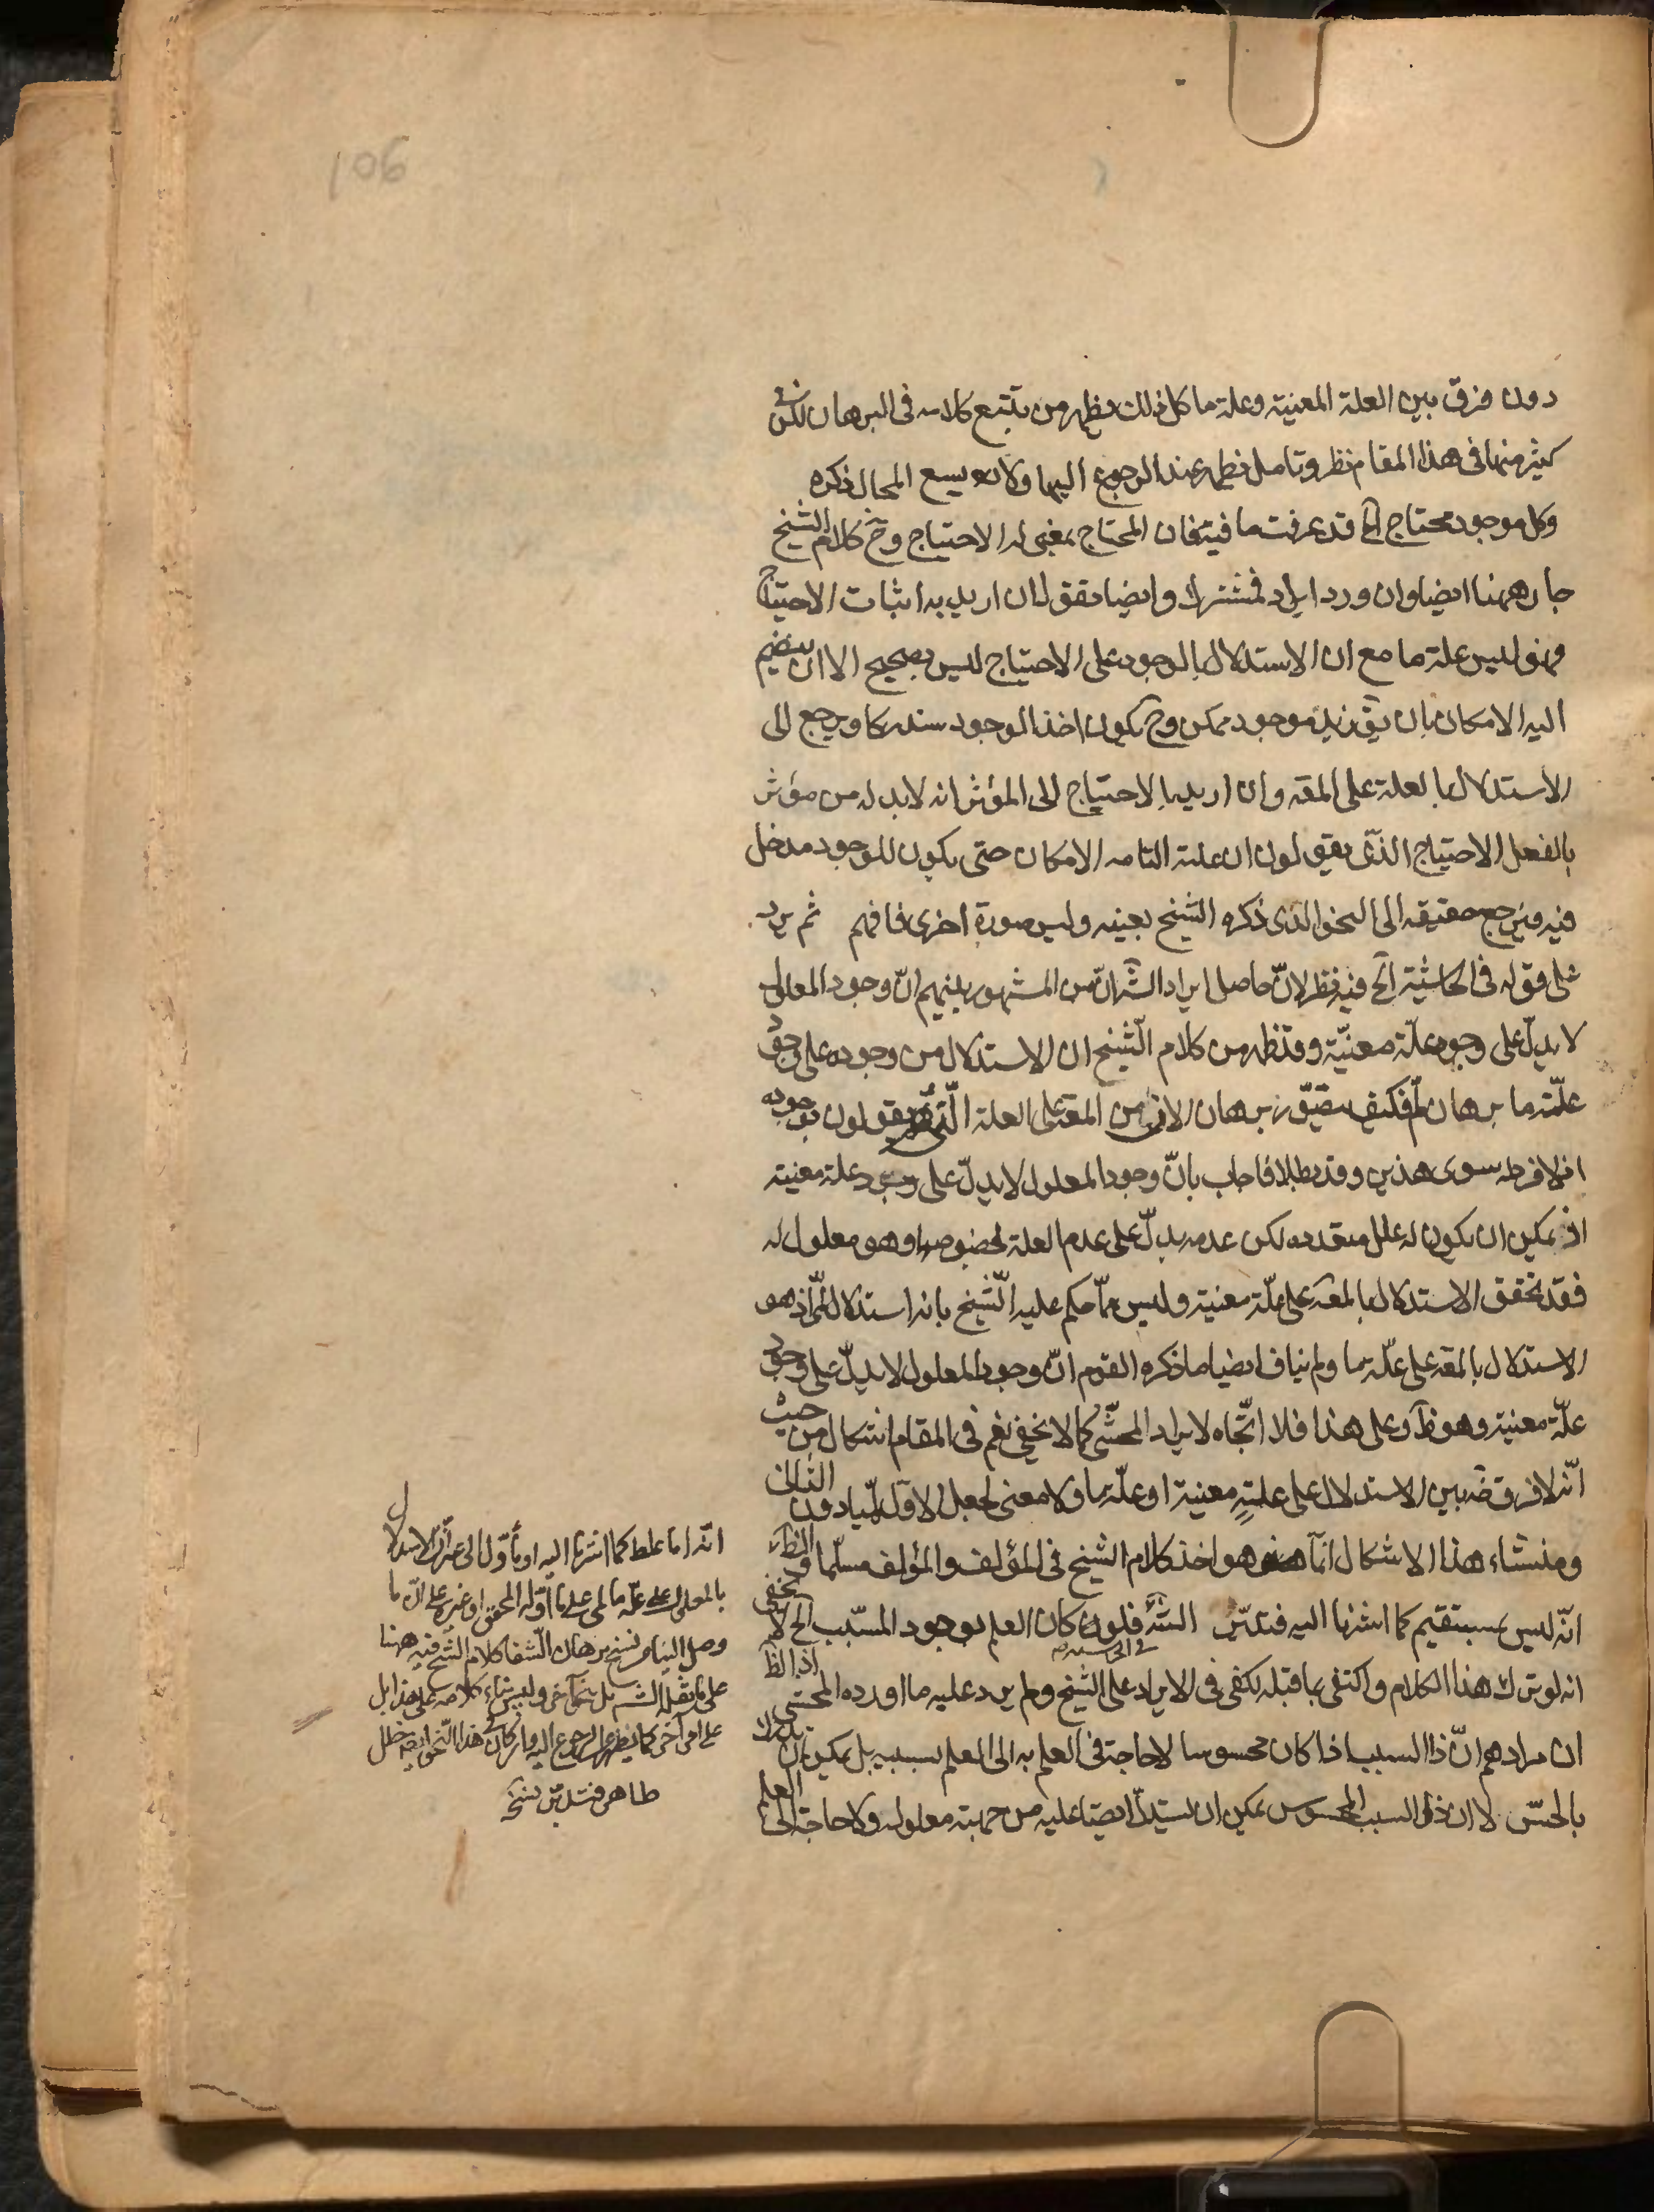 106
دون فرق بين العلة المعينة وعلة ما كل ذلك يظهر من تتبع كلامه في البرهان لكن في
كثير منها في هذا المقام نظر وتامل يظهر عند الرجوع اليها ولا يسع المجال ذكره
وكل موجود محتاج الخ قد عرفت ما فيه فان المحتاج بمعنى له الاحتياج وح كلام الشيخ
جار ههنا ايضا وان ورد ايراد فمشترك وايضا نقول ان اريد به اثبات الاحتياج
فهو ليس علة ما مع ان الاستدلال بالوجود على الاحتياج ليس بصحيح الا ان ينضم
اليه الامكان بان يق زيد موجود ممكن وح يكون اخذ الوجود مستدركا ويرجع الى
الاستدلال بالعلة على المعه وان اريد بالاحتياج الى المؤثر انه لابد له من مؤثر
بالفعل الاحتياج الذى يقولون ان علته التامه الامكان حتى يكون للوجود مدخل
فيه فيرجع حقيقه الى النحو الذى ذكره الشيخ بعينه وليس صورة اخرى فافهم ثم يرد
على قوله في الحاشية الخ فيه نظر لانّ حاصل ايراد الشه انّ من المشهور بينهم انّ وجود المعلول
لا يدلّ على وجود علّة معيّنة وقد ظهر من كلام الشّيخ ان الاستدلال من وجوده على وجود
علّة ما برهان لمّ فكيف يتحقّق برهان الانّ من المعه على العلة الّتى يقولون بوجوده
اذ لا فرد له سوى هذين وقد بطلا فاجاب بانّ وجود المعلول لا يدلّ على وجود علة معينة
اذ يمكن ان يكون له علل متعدده لكن عدمه يدلّ على عدم العلة بخصوصها وهو معلول له
فقد تحقق الاستدلال بالمعه على علّة معينة وليس ممّا حكم عليه الشّيخ بانه استدلال لمّى اذ هو
الاستدلال بالمعه على علّة ما ولم يناف ايضا ما ذكره القوم انّ وجود المعلول لا يدلّ على وجود
علّة معينة وهو ظ وعلى هذا فلا اتّجاه لايراد المحشّى كما لا يخفى نعم في المقام اشكال من حيث
انّه لا فرق بين الاستدلال على علةٍ معينة او علّة ما ولا معنى لجعل الاوّل لمّيا دون الثانى
ومنشاء هذا الاشكال انّما هو اخذ كلام الشيخ في المؤلف والمؤلف مسلّما والظاهر
انّه ليس بمستقيم كما اشرنا اليه فتدبّر الشه فلو كان العلم بوجود المسبّب الخ لا يخفى
في الحاشيه
انه لو ترك هذا الكلام واكتفى بما قبله لكفى في الايراد على الشيخ ولم يرد عليه ما اورده المحشى اذ الظ
ان مرادهم انّ ذا السبب اذا كان محسوسا لا حاجة في العلم به الى العلم بسببه بل يمكن ان يدرك
بالحسّ لا ان ذى السبب المحسوس يمكن ان يستدلّ ايضا عليه من جهة معلوله ولا حاجة الى العلم
انّه اما غلط كما اشرنا اليه او يأوّل الى الاستدلال
بالمعلول على علّة ما لمى على ما أوّله المحقق او غيره على انّ ما
وصل الينا من نسخ برهان الشفا كلام الشيخ فيه ههنا
على ما نقله الشه بل نحو آخر وليس بناء كلامه على هذا بل
على امر آخر كما يظهر بالرجوع اليه وان كان في هذا النحو ايضا خلل
ظاهر فتدبر